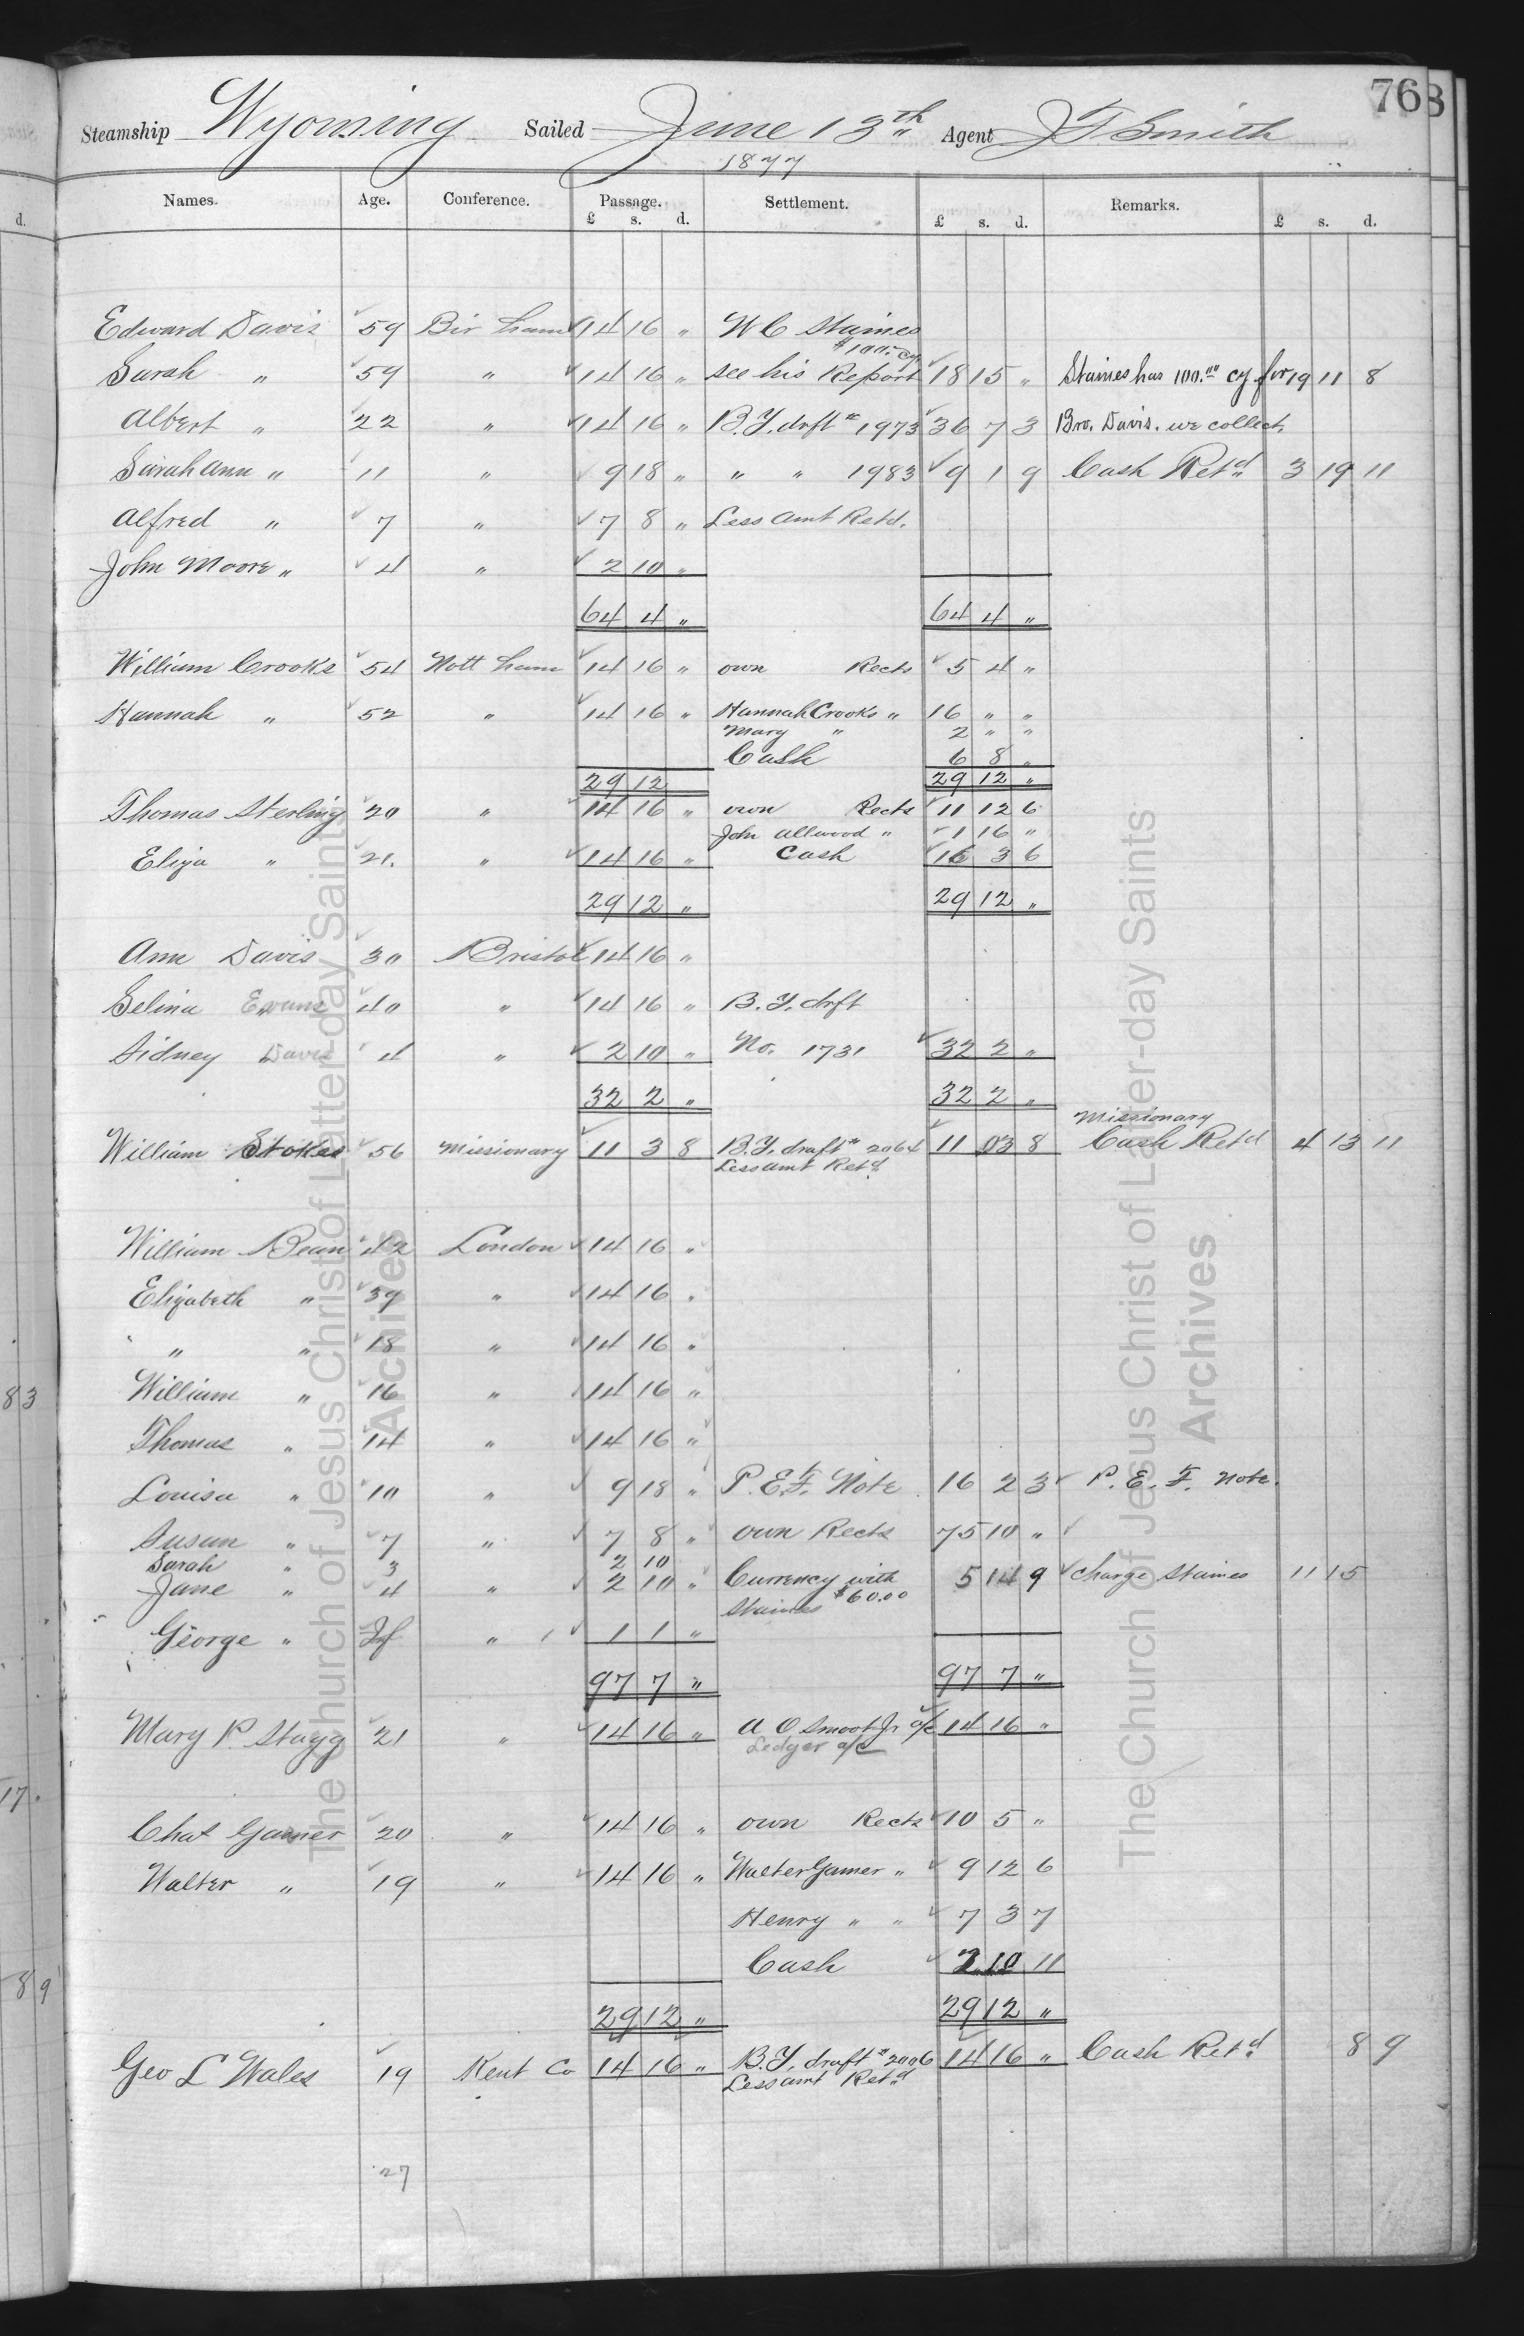 768
Steamship Wyoming Sailed June 13th Agent J T Smith
1877
Names. Age. Conference. Passage. Settlement. Remarks.
d. £ s. d. £ s. d. £ s. d.
Edward Davis 59 Bir ham 14 16 " W C Staines
$100.- cy
Sarah " 59 " 14 16 " see his Report 18 15 " Staines has 100.00 cy for 19 11 8
Albert " 22 " 14 16 " B.Y. drft # 1973 36 7 3 Bro. Davis. we collect.
Sarah Ann " 11 " 9 18 " " " 1983 9 1 9 Cash Retd 3 19 11
Alfred " 7 " 7 8 " Less amt Retd.
John Moore " 4 " 2 10 "
64 4 " 64 4 "
William Crooks 54 Nott ham 14 16 " own Rects 5 4 "
Hannah " 52 " 14 16 " Hannah Crooks " 16 " "
Mary " 2 " "
Cash 6 8 "
29 12 29 12 "
Thomas Sterling 20 " 14 16 " own Rects 11 12 6
John Allwood " 1 16 "
Eliza " 21. " 14 16 " Cash 16 3 6
29 12 " 29 12 "
Ann Davis 30 Bristol 14 16 "
Selina Evans 40 " 14 16 " B.Y. drft
Sidney Davis 4 " 2 10 " No. 1731 32 2 "
32 2 " 32 2 "
Missionary
William Stokes 56 Missionary 11 3 8 B.Y. draft # 2064 11 03 8 Cash Retd 4 13 11
Less amt Retd
William Bean 42 London 14 16 "
Elizabeth " 39 " 14 16 "
" " 18 " 14 16 "
83
William " 16 " 14 16 "
Thomas " 14 " 14 16 "
Louisa " 10 " 9 18 " P.E.F. Note 16 2 3 P.E.F. Note.
Susan " 7 " 7 8 " own Rects 75 10 "
Sarah " 3 2 10
Jane " 4 " 2 10 " Currency with 5 14 9 Charge Staines 11 15
Staines $60.00
George " Inf " 1 1 "
97 7 " 97 7 "
Mary P. Stagg 21 " 14 16 " A O Smoot Jr a/c 14 16 "
Ledger a/c
17.
Chas Garner 20 " 14 16 " own Rects 10 5 "
Walter " 19 " 14 16 " Walter Garner " 9 12 6
Henry " " 7 3 7
Cash 2 10 11
89
29 12 " 29 12 "
Geo L Wales 19 Kent Co 14 16 " B.Y. draft # 2006 14 16 " Cash Retd 8 9
Less amt Retd
27
The Church of Jesus Christ of Latter-day Saints
Archives
The Church of Jesus Christ of Latter-day Saints
Archives